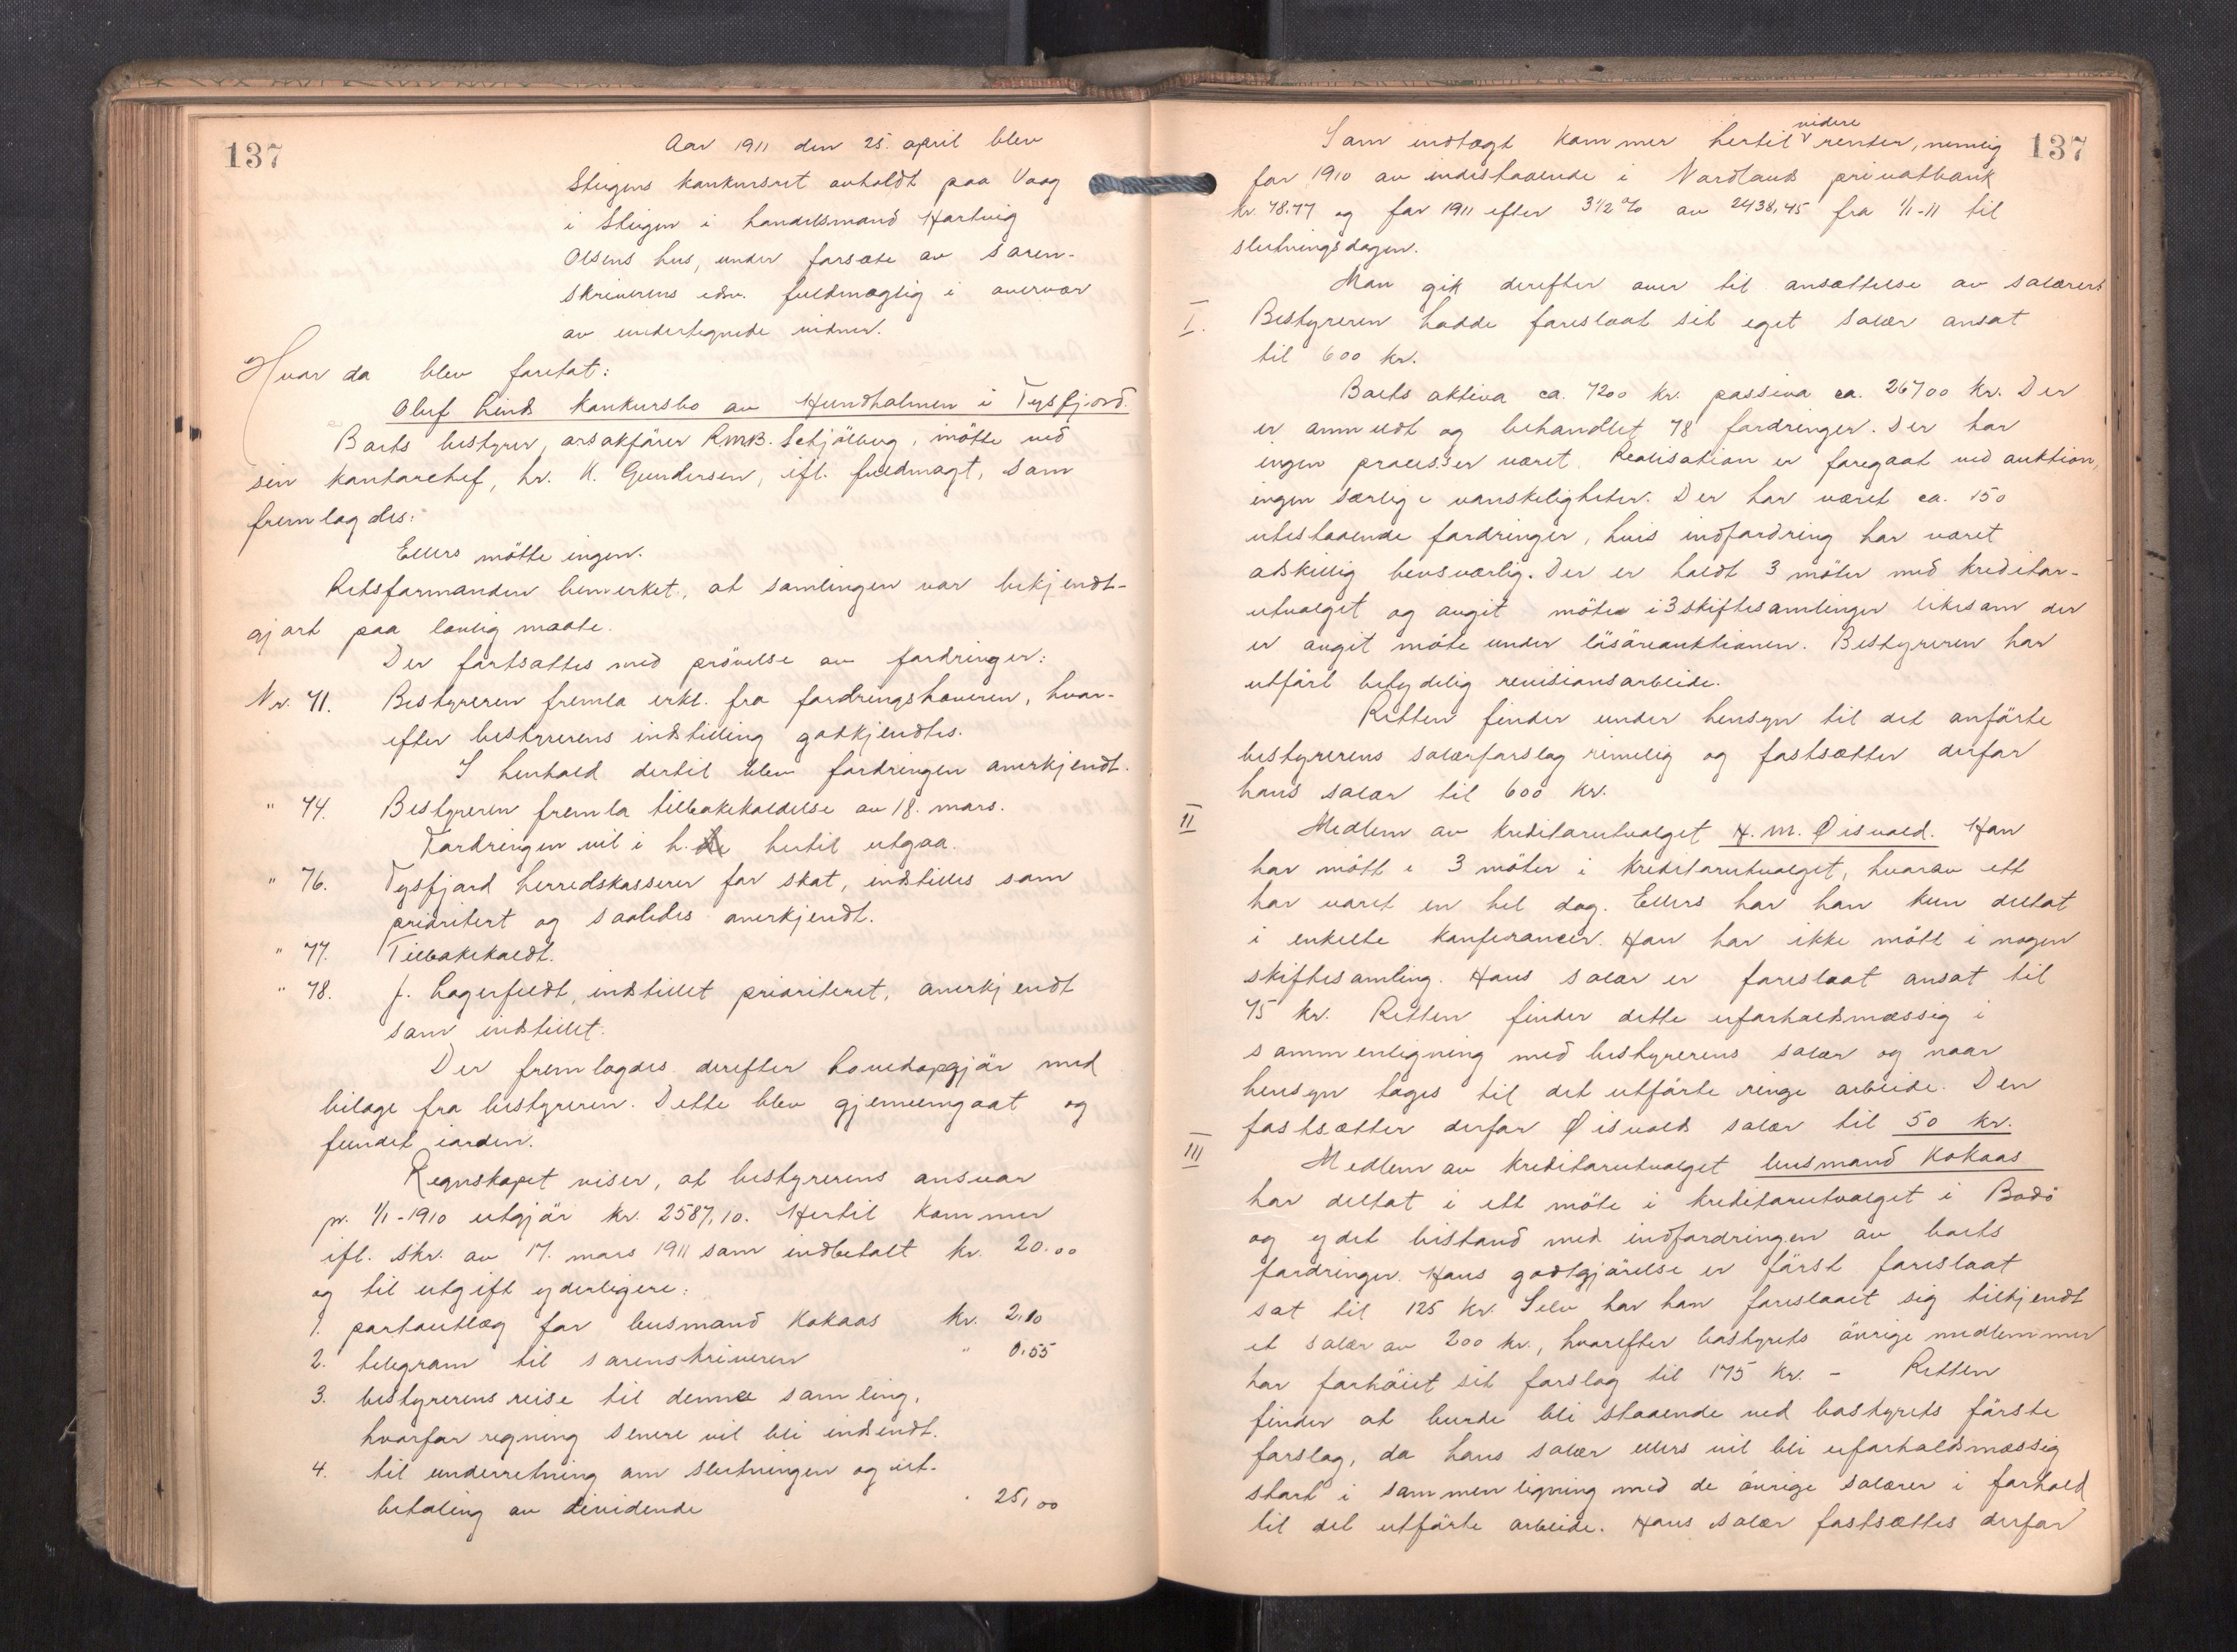 137
Aar 1911 den 25. april blev
Steigens konkursret avholdt paa Vaag
i Steigen i handelsmand Hartvig
Olsens hus, under forsæte av soren-
skriverens edsv. fuldmægtig i overvær
av undertegnede vidner.
Hvor da blev foretat:
Oluf Linds konkursbo av Hundholmen i Tysfjord.
Boets bestyrer, orsakfører RMB. Schjölberg, mötte ved
sin kontorchef, hr. K. Gundersen, ifl. fuldmagt, som
fremlagdes:
Ellers mötte ingen.
Retsformanden bemerket, at samlingen var bekjendt-
gjort paa lovlig maate.
Der fortsattes med prövelse av fordringer:
Nr. 71. Bestyreren fremla erkl. fra fordringshaveren, hvor-
efter bestyrerens indstilling godkjendtes.
I henhold dertil blev fordringen anerkjendt.
" 74. Bestyreren fremla tilbakekaldelse av 18. mars.
Fordringen vil i h. hertil utgaa.
" 76. Tysfjord herredskasserer for skat, indstilles som
prioritert og saaledes anerkjendt.
" 77. Tilbakekaldt.
" 78. J. Lagerfeldt, indstillet prioriteret, anerkjendt
som indstillet.
Der fremlagdes derefter hovedopgjör med
bilage fra bestyreren. Dette blev gjennemgaat og
fundet iorden.
Regnskapet viser, at bestyrerens ansvar
pr. 1/1-1910 utgjör kr. 2587,10. Hertil kommer
ifl. skr. av 17. mars 1911 som indbetalt kr. 20.00
og til utgift yderligere:
1. portoutlæg for lensmand Kokaas kr. 2.10
2. telegram til sorenskriveren " 0.55
3. bestyrerens reise til denne samling,
hvorfor regning senere vil bli indsendt.
4. til underretning om slutningen og ut-
betaling av dividende " 25,00
137
Som indtægt kommer hertil videre renter, nemlig
for 1910 av indestaaende i Nordlands privatbank
kr. 78.77 og for 1911 efter 3 1/2 % av 2438,45 fra 1/1-11 til
slutningsdagen.
Man gik derefter over til ansættelse av salærer.
I. Bestyreren hadde foreslaat sit eget salær ansat
til 600 kr.
Boets aktiva ca. 7200 kr. passiva ca. 26700 kr. Der
er anmeldt og behandlet 78 fordringer. Der har
ingen processer været. Realisation er foregaat ved auktion,
ingen særlige vanskeligheter. Der har været ca. 150
utestaaende fordringer, hvis indfordring har været
adskillig besværlig. Der er holdt 3 möter med kreditor-
utvalget og avgit möte i 3 skiftesamlinger likesom der
er avgit möte under lösöreauktionen. Bestyreren har
utfört betydelig revisionsarbeide.
Retten finder under hensyn til det anförte
bestyrerens salærforslag rimelig og fastsætter derfor
hans salær til 600 kr.
II Medlem av kreditorutvalget H. M. Øisvold. Han
har mött i 3 möter i kreditorutvalget, hvorav ett
har varet en hel dag. Ellers har han kun deltat
i enkelte konferancer. Han har ikke mött i nogen
skiftesamling. Hans salær er foreslaat ansat til
75 kr. Retten finder dette uforholdsmæssig i
sammenligning med bestyrerens salær og naar
hensyn tages til det utförte ringe arbeide. Den
fastsætter derfor Øisvolds salær til 50 kr.
III Medlem av kreditorutvalget lensmand Kokaas
har deltat i ett möte i kreditorutvalget i Bodö
og ydet bistand med indfordringen av boets
fordringer. Hans godtgjörelse er först foreslaat
sat til 125 kr. Selv har han foreslaaet sig tilkjendt
et salær av 200 kr., hvorefter bostyrets övrige medlemmer
har forhöiet sit forslag til 175 kr. - Retten
finder at burde bli staaende ved bostyrets förste
forslag, da hans salær ellers vil bli uforholdsmæssig
stort i sammenligning med de övrige salærer i forhold
til det utförte arbeide. Hans salær fastsættes derfor